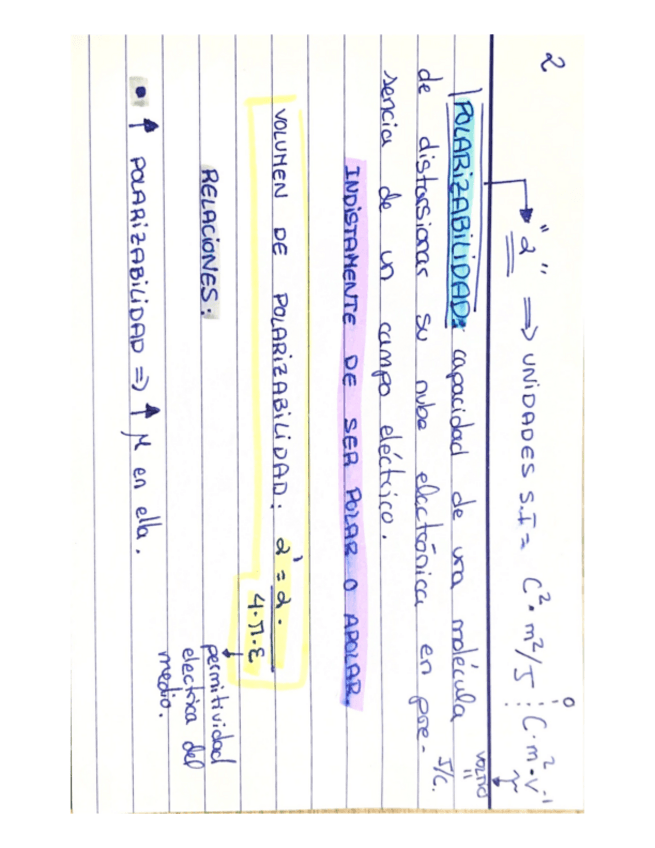 2
"α" ⇒ UNIDADES S.I = C²·m²/J ; ó C·m²·V⁻¹
VOLTIO = J/C.
POLARIZABILIDAD: capacidad de una molécula
de distorsionar su nube electrónica en pre-
sencia de un campo eléctrico.
INDISTAMENTE DE SER POLAR O APOLAR.
VOLUMEN DE POLARIZABILIDAD: α' = α.
4·π·ε
permitividad
RELACIONES:
electrica del
medio.
• ↑ POLARIZABILIDAD ⇒ ↑ μ en ella.